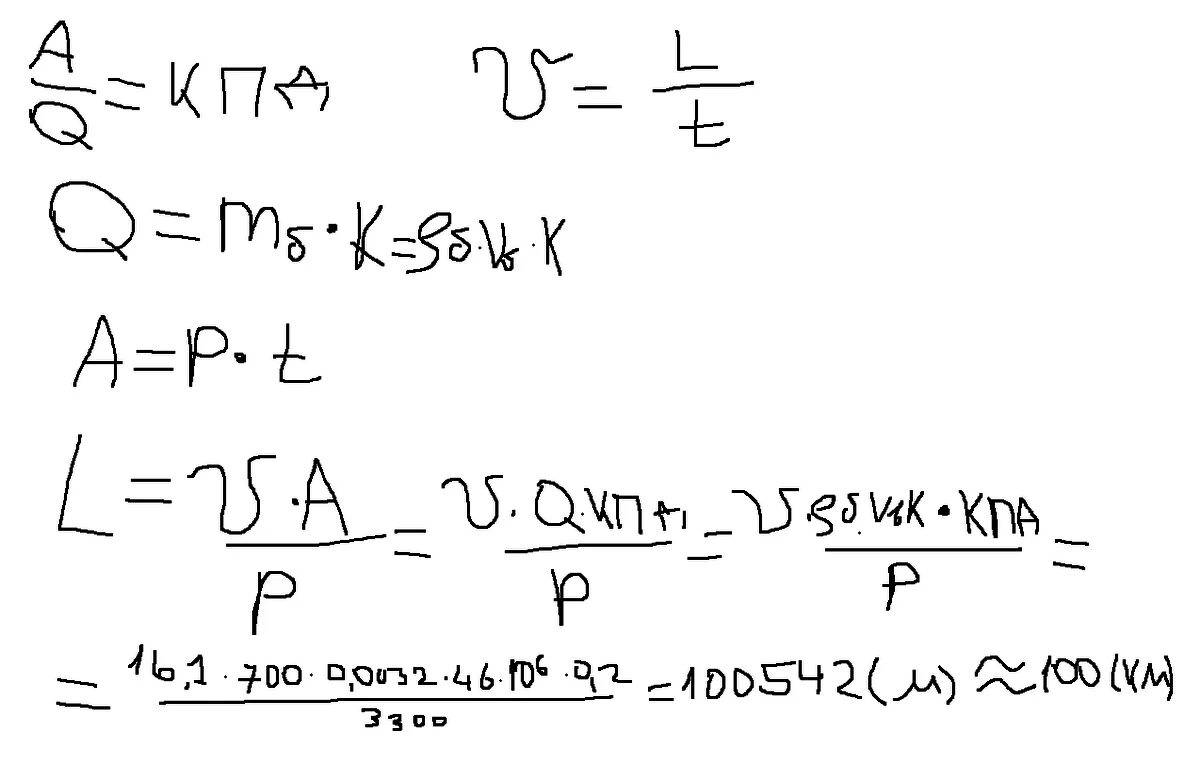 A/Q = КПД    υ = L/t
Q = mб · K = ρб · Vб · K
A = P · t
L = υ · A/P = υ · Q · КПД/P = υ · ρб · Vб K · КПД/P =
= 16,1 · 700 · 0,0032 · 46 · 10⁶ · 0,2/3300 = 100542 (м) ≈ 100 (км)